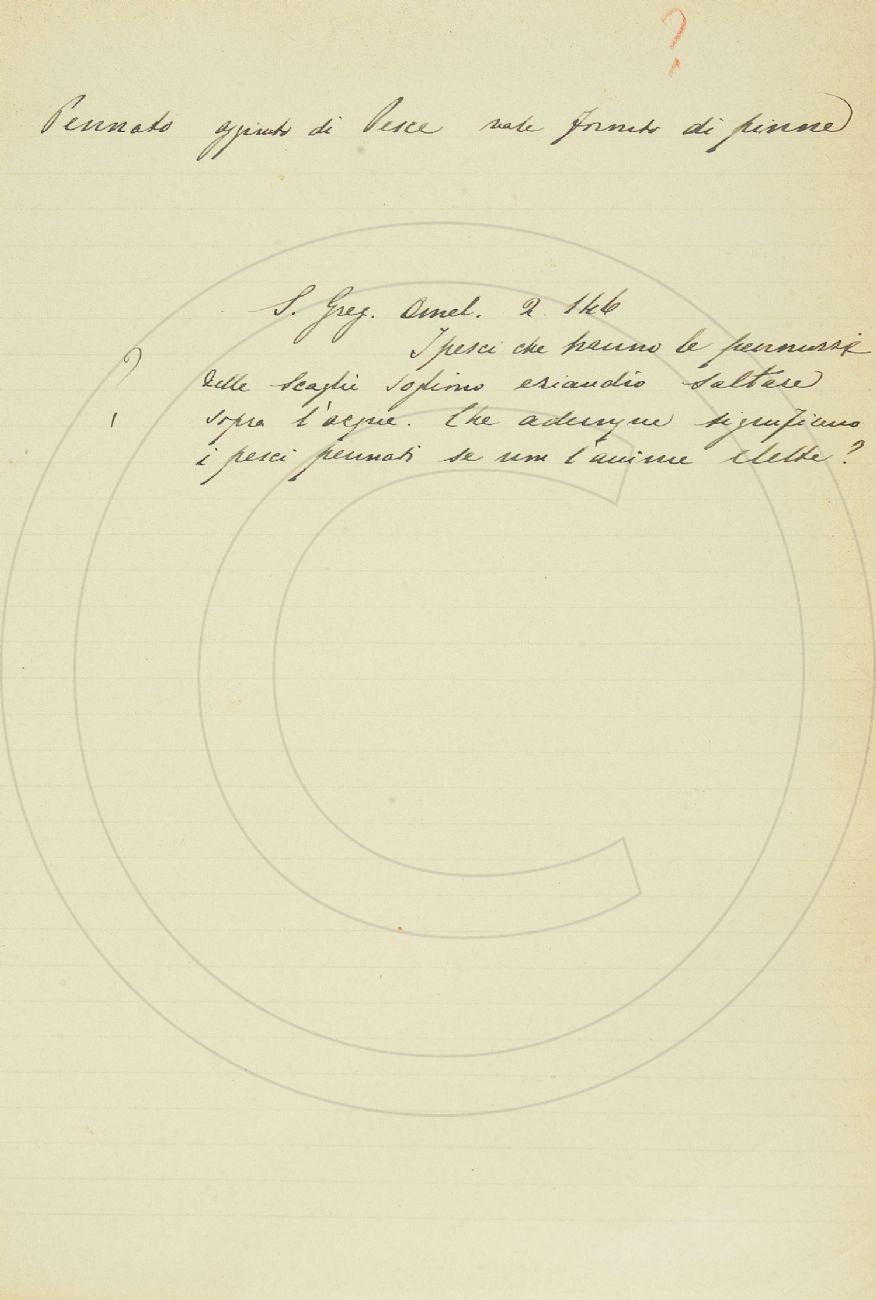 ?
Pennato aggiunto di Pesce vale fornito di pinne
S. Greg. Omel. 2 146
I pesci che hanno le pennuzze
? delle scaglie sogliono eziandio saltare
sopra l'acque. Che adunque significano
i pesci pennati se non l'anime elette?